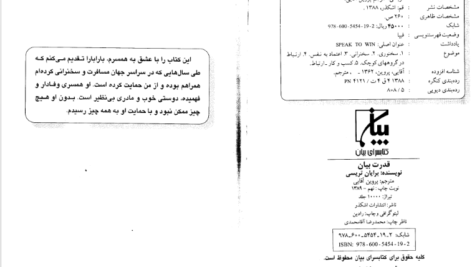 مشخصات نشر : قم: اشکذر، ۱۳۸۸.
مشخصات ظاهری : ۲۶۰ ص.
شابک : ۴۵۰۰۰ ریال: 2-19-5454-600-978
وضعیت فهرست‌نویسی : فیپا
یادداشت : عنوان اصلی: SPEAK TO WIN
موضوع : ۱. سخنوری. ۲. سخنرانی. ۳. اعتماد به نفس. ۴. ارتباط
در گروههای کوچک. ۵. کسب و کار ـ ارتباط.
شناسه افزوده : آقایی، پروین، ۱۳۶۲ ـ ، مترجم.
رده‌بندی کنگره : PN ۴۱۲۱ / ت ۴ ق ۴ ۱۳۸۸
رده‌بندی دیویی : ۸۰۸/۵
بیان
کتابسرای بیان
قدرت بیان
نویسنده: برایان تریسی
مترجم: پروین آقایی
نوبت چاپ: نهم - ۱۳۸۹
تیراژ: ۱۰۰۰۰ جلد
ناشر: انتشارات اشکذر
لیتوگرافی و چاپ: رادین
ناظر چاپ: محمدرضا آقامحمدی
شابک: ۲ـ۱۹ـ۵۴۵۴ـ۶۰۰ـ۹۷۸
ISBN: 978-600-5454-19-2
کلیه حقوق برای کتابسرای بیان محفوظ است.
این کتاب را با عشق به همسرم، باربارا تقدیم می‌کنم که
طی سال‌هایی که در سراسر جهان مسافرت و سخنرانی کرده‌ام
همراهم بوده و از من حمایت کرده است. او همسری وفادار و
فهمیده، دوستی خوب و مادری بی‌نظیر است. بدون او هیچ
چیز ممکن نبود و با حمایت او به همه چیز رسیدم.